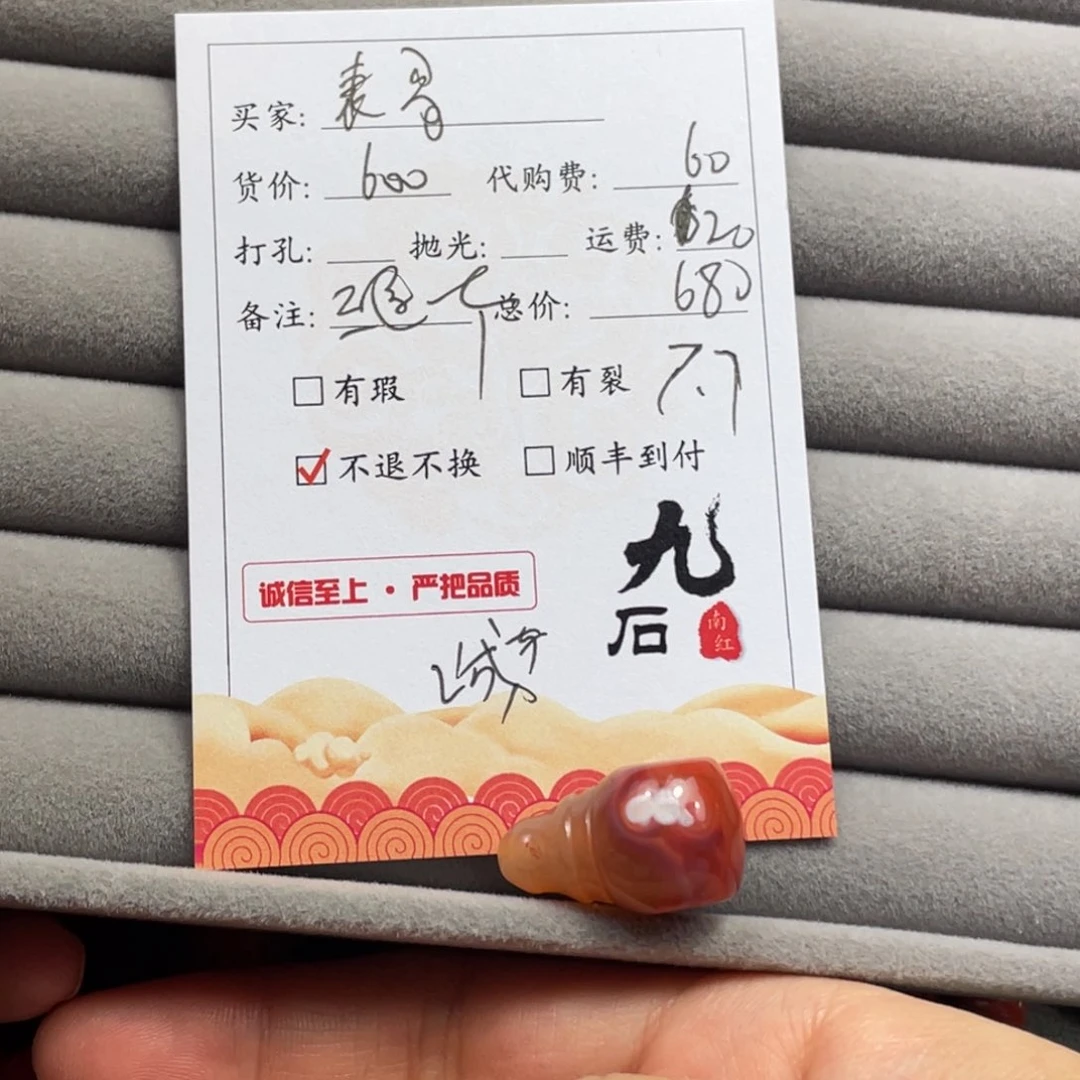 买家:
货价: 600 代购费: 60
打孔: 抛光: 运费: 20
备注: 总价: 680
有瑕 有裂 7.7
不退不换 顺丰到付
九石
南红
诚信至上·严把品质